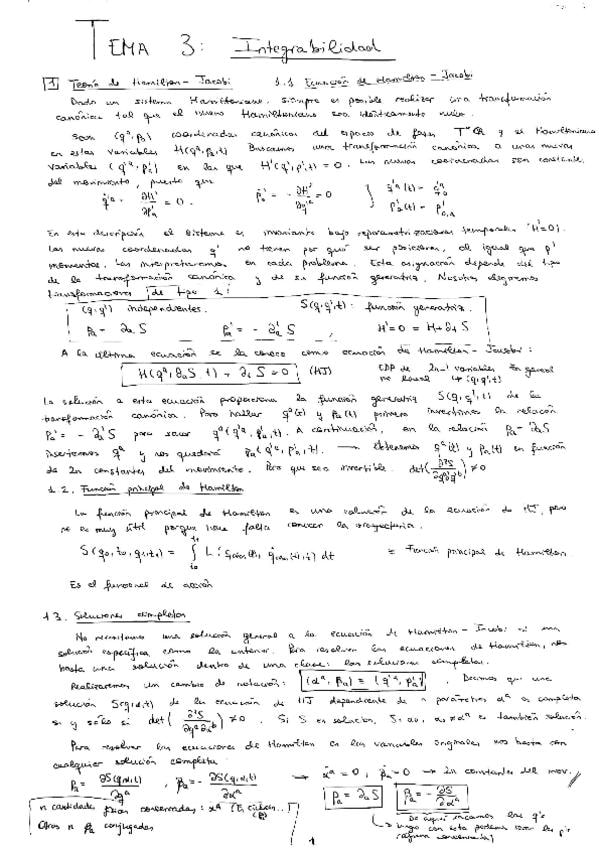 TEMA 3: Integrabilidad
1 Teoría de Hamilton - Jacobi 1.1 Ecuación de Hamilton - Jacobi
Dado un sistema Hamiltoniano, siempre es posible realizar una transformación
canónica tal que el nuevo Hamiltoniano sea idénticamente nulo.
Sean (qᵃ, pₐ) coordenadas canónicas del espacio de fases T*Q y el Hamiltoniano
en estas variables H(qᵃ, pₐ, t) Buscamos una transformación canónica a unas nuevas
variables (q'ᵃ, p'ₐ) en las que H'(q', p', t) = 0. Las nuevas coordenadas son constantes
del movimiento, puesto que
q̇'ᵃ = ∂H'/∂p'ₐ = 0. ṗ'ₐ = - ∂H'/∂q'ᵃ = 0 } q'ᵃ(t) = p'ₐ(t) =
En esta descripción el sistema es invariante bajo reparametrizaciones temporales (H'=0).
Las nuevas coordenadas q' no tienen por qué ser posiciones, al igual que p'
momentos. Las interpretaremos en cada problema. Esta asignación depende del tipo
de la transformación canónica y de su función generatriz. Nosotros elegiremos
transformaciones de tipo 1:
(q, q') independientes. S(q, q', t): función generatriz.
pₐ = ∂ₐS p'ₐ = - ∂'ₐS H' = 0 = H + ∂ₜS
A la última ecuación se la conoce como ecuación de Hamilton - Jacobi:
H(qᵃ, ∂ₐS, t) + ∂ₜS = 0 (HJ) EDP de variables. En general no lineal (q, q', t)
La solución a esta ecuación proporciona la función generatriz S(q, q', t) de la
transformación canónica. Para hallar qᵃ(t) y pₐ(t) primero invertimos la relación
p'ₐ = - ∂'ₐS para sacar qᵃ(q'ᵃ, p'ₐ, t). A continuación, en la relación pₐ = ∂ₐS
insertamos qᵃ y nos quedará pₐ(q'ᵃ, p'ₐ, t). → Obtenemos qᵃ(t) y pₐ(t) en función
de 2n constantes del movimiento. Para que sea invertible. det(∂²S/∂qᵃ∂q'ᵇ) ≠ 0
1.2. Función principal de Hamilton
La función principal de Hamilton es una solución de la ecuación de HJ, pero
no es muy útil porque hace falta conocer la trayectoria.
S(q₀, t₀, q₁, t₁) = ∫ L dt ≡ Función principal de Hamilton
Es el funcional de acción
1.3. Soluciones completas
No necesitamos una solución general a la ecuación de Hamilton - Jacobi ni una
solución específica como la anterior. Para resolver las ecuaciones de Hamilton, nos
basta una solución dentro de una clase: las soluciones completas.
Realizaremos un cambio de notación: (αᵃ, βₐ) = (q'ᵃ, p'ₐ). Decimos que una
solución S(q, α, t) de la ecuación de HJ dependiente de n parámetros αᵃ es completa
si y sólo si det(∂²S/∂qᵃ∂αᵇ) ≠ 0. Si S es solución, también solución.
Para resolver las ecuaciones de Hamilton en las variables originales nos basta con
cualquier solución completa.
pₐ = ∂S(q, α, t)/∂qᵃ, βₐ = - ∂S(q, α, t)/∂αᵃ → α̇ᵃ = 0, β̇ₐ = 0 → 2n constantes del mov.
pₐ = ∂ₐS βₐ = - ∂S/∂αᵃ
n cantidades conservadas: αᵃ
Otros n βₐ conjugadas
De aquí sacamos las q's
luego con esta podemos sacar las p's
1